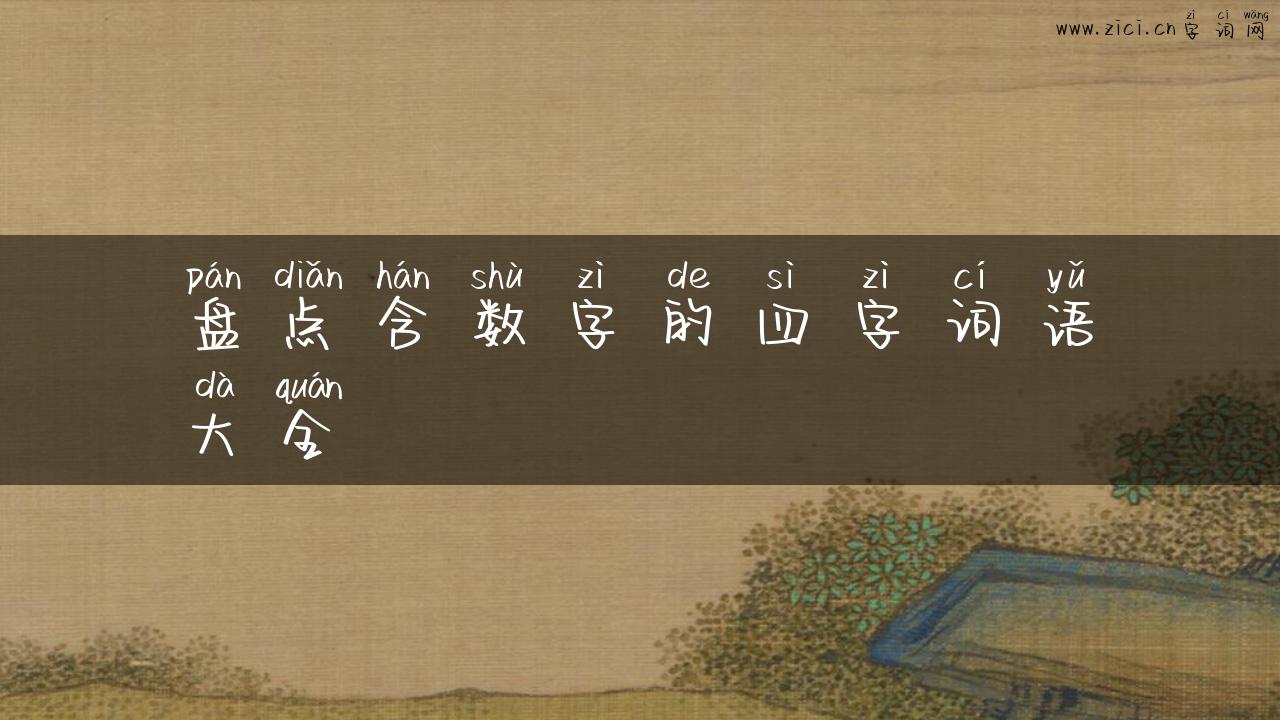 zì cí wǎng
www.zici.cn字词网
pán diǎn hán shù zì de sì zì cí yǔ
盘点含数字的四字词语
dà quán
大全